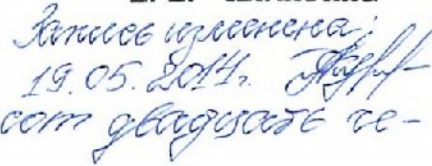 Запись изменена
19.05.2014г.
сот двадцать че-